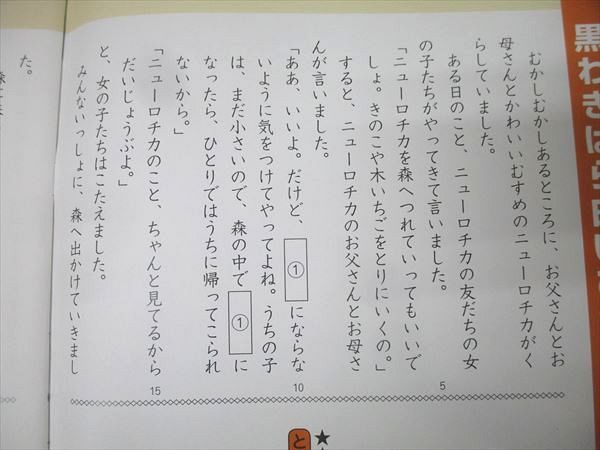 黒わきはら
むかしむかしあるところに、お父さんとお
母さんとかわいいむすめのニューロチカがく
らしていました。
ある日のこと、ニューロチカの友だちの女
の子たちがやってきて言いました。
「ニューロチカを森へつれていってもいいで
しょ。きのこや木いちごをとりにいくの。」
すると、ニューロチカのお父さんとお母さ
んが言いました。
「ああ、いいよ。だけど、①にならな
いように気をつけてやってよね。うちの子
は、まだ小さいので、森の中で①に
なったら、ひとりではうちに帰ってこられ
ないから。」
「ニューロチカのこと、ちゃんと見てるから
だいじょうぶよ。」
と、女の子たちはこたえました。
みんないっしょに、森へ出かけていきまし
た。
5
10
15
★
と